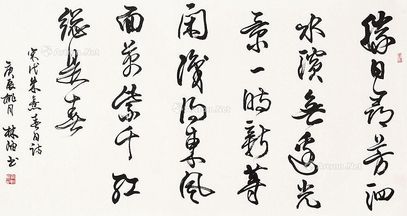 勝日尋芳泗
水濱無邊光
景一時新等
閑識得東風
面萬紫千紅
總是春
宋代朱熹春日詩
庚辰桃月 林書